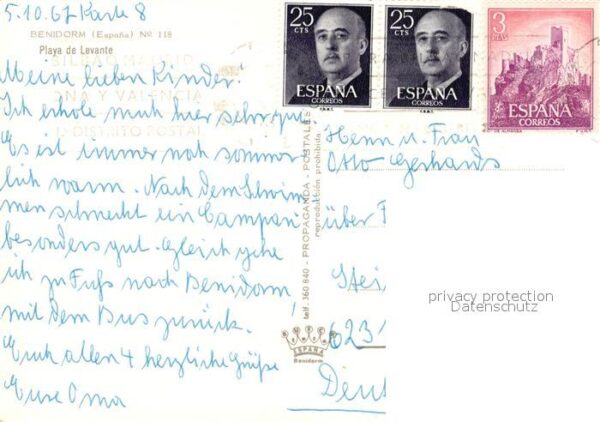 5.10.67 Karte 8
BENIDORM (España) Nº 118
Playa de Levante
Meine lieben Kinder!
Ich erhole mich hier sehr gut
Es ist immer noch sommer
lich warm. Nach dem Schwim
men schmeckt ein Campari
besonders gut. Gleich gehe
ich zu Fuß nach Benidorm,
mit dem Bus zurück.
Euch allen 4 herzliche Grüße
Eure Oma
telf. 360 840 - PROPAGANDA - POSTALES
reproducción prohibida
ESPAÑA
Benidorm
25
CTS
ESPAÑA
CORREOS
25
CTS
ESPAÑA
CORREOS
3
PTAS
ESPAÑA
CORREOS
Herrn u. Frau
Otto Gerhards
über F
Stei
623
Deut
privacy protection
Datenschutz